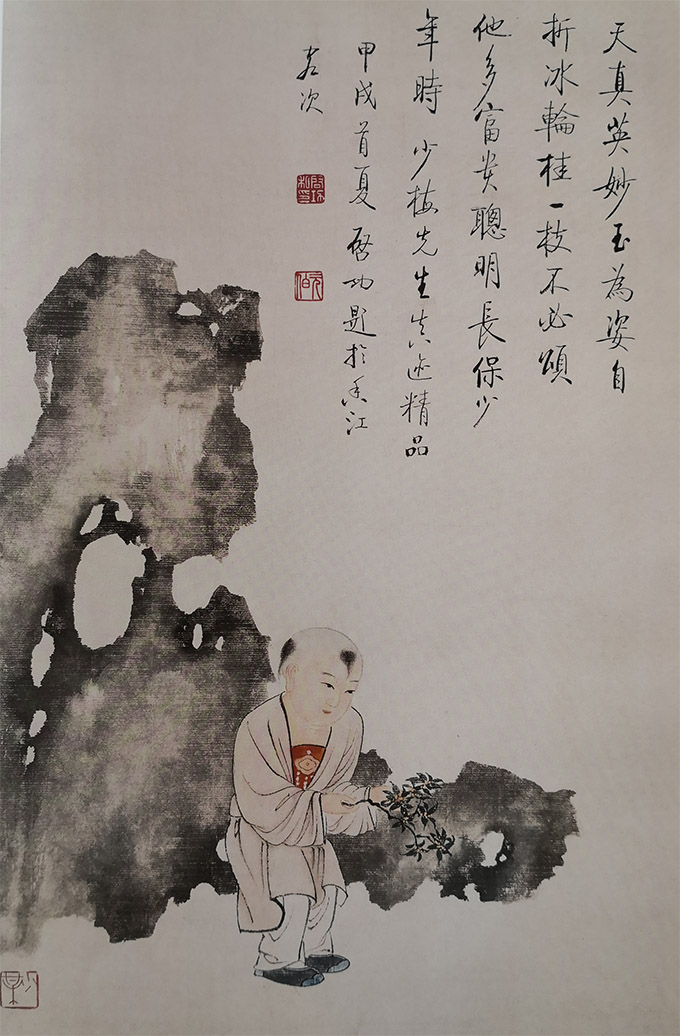 天真英妙玉為姿自
折冰輪桂一枝不必頌
他多富貴聰明長保少
年時 少梅先生真迹精品
甲戌首夏 啓功題於香江
客次
元伯
少梅